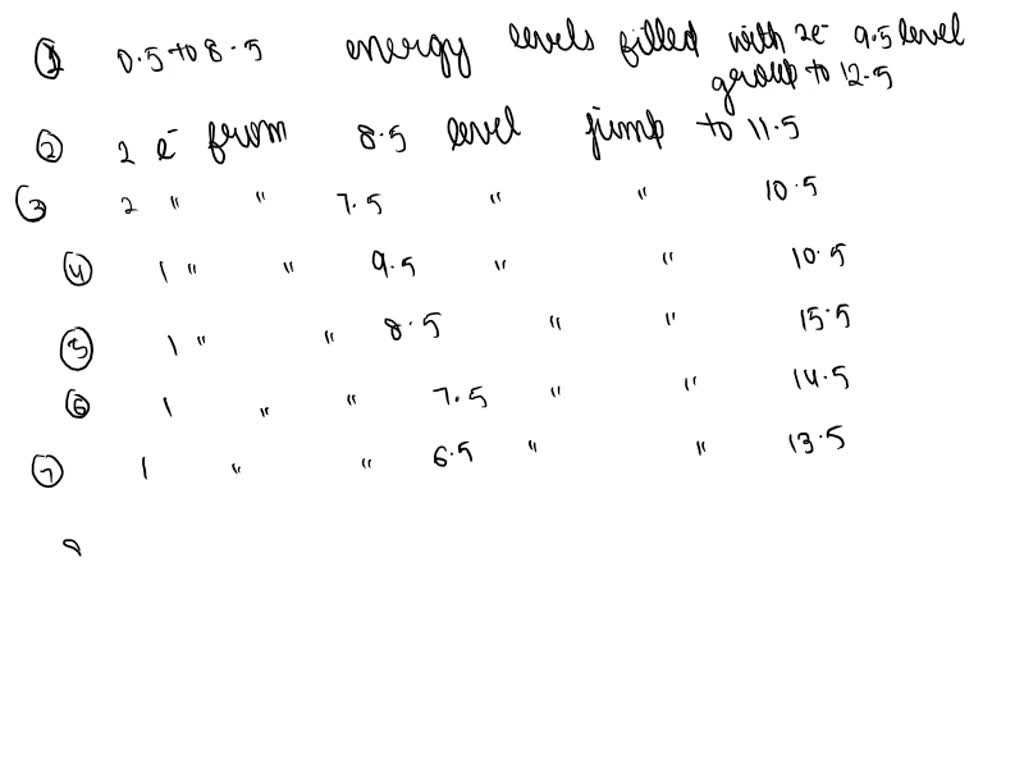 ① 0.5 to 8.5 energy levels filled with 2e⁻ 9.5 level
group to 12.5
② 2 e⁻ from 8.5 level jump to 11.5
③ 2 " " 7.5 " " 10.5
④ 1 " " 9.5 " " 10.5
⑤ 1 " " 8.5 " " 15.5
⑥ 1 " " 7.5 " " 14.5
⑦ 1 " " 6.5 " " 13.5